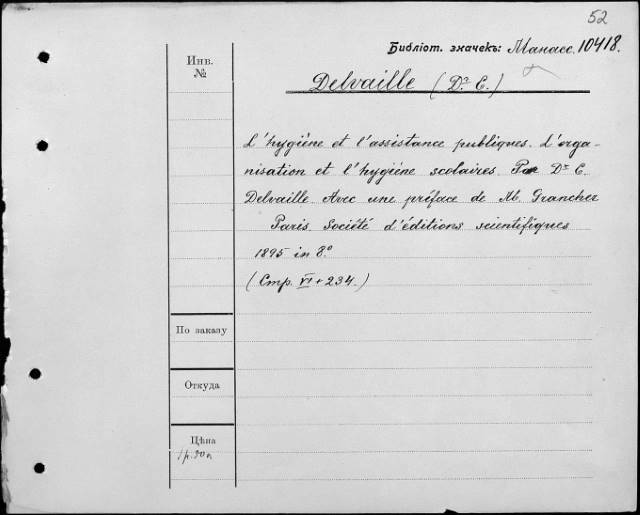 52
Библіот. значекъ: Манасс. 10418.
Инв.
№
Delvaille (Dr E.)
L'hygiéne et l'assistance publiques. L'orga-
nisation et l'hygiéne scolaires. Par Dr E.
Delvaille. Avec une préface de M. Grancher
Paris. Société d'éditions scientifiques
1895 in 8°
(Стр. VI + 234.)
По заказу
Откуда
Цѣна
1 р. 30 к